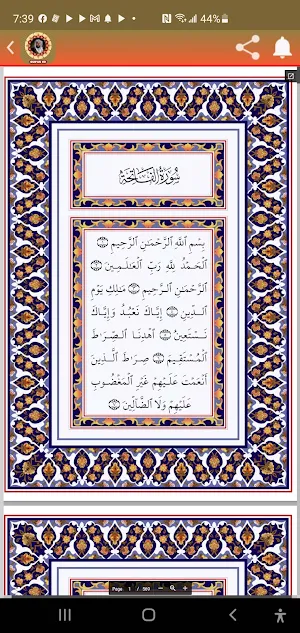 7:39
44%
سُورَةُ الفَاتِحَةِ
بِسْمِ ٱللَّهِ ٱلرَّحْمَٰنِ ٱلرَّحِيمِ
ٱلْحَمْدُ لِلَّهِ رَبِّ ٱلْعَٰلَمِينَ
ٱلرَّحْمَٰنِ ٱلرَّحِيمِ مَٰلِكِ يَوْمِ
ٱلدِّينِ إِيَّاكَ نَعْبُدُ وَإِيَّاكَ
نَسْتَعِينُ ٱهْدِنَا ٱلصِّرَٰطَ
ٱلْمُسْتَقِيمَ صِرَٰطَ ٱلَّذِينَ
أَنْعَمْتَ عَلَيْهِمْ غَيْرِ ٱلْمَغْضُوبِ
عَلَيْهِمْ وَلَا ٱلضَّآلِّينَ
Page 1 / 569